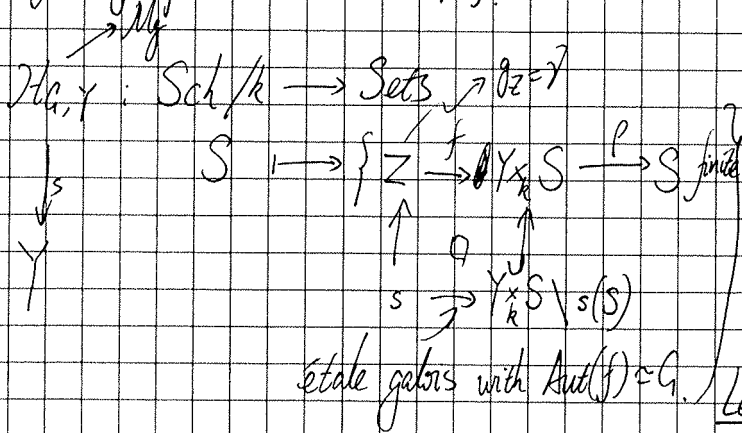 → M_g
H_{G,Y} : Sch/k → Sets g_Z = γ
S ↦ { Z →^f Y ×_k S →^p S finite
↓ s
Y
s → Y ×_k S \ s(S)
étale galois with Aut(f) ≃ G.